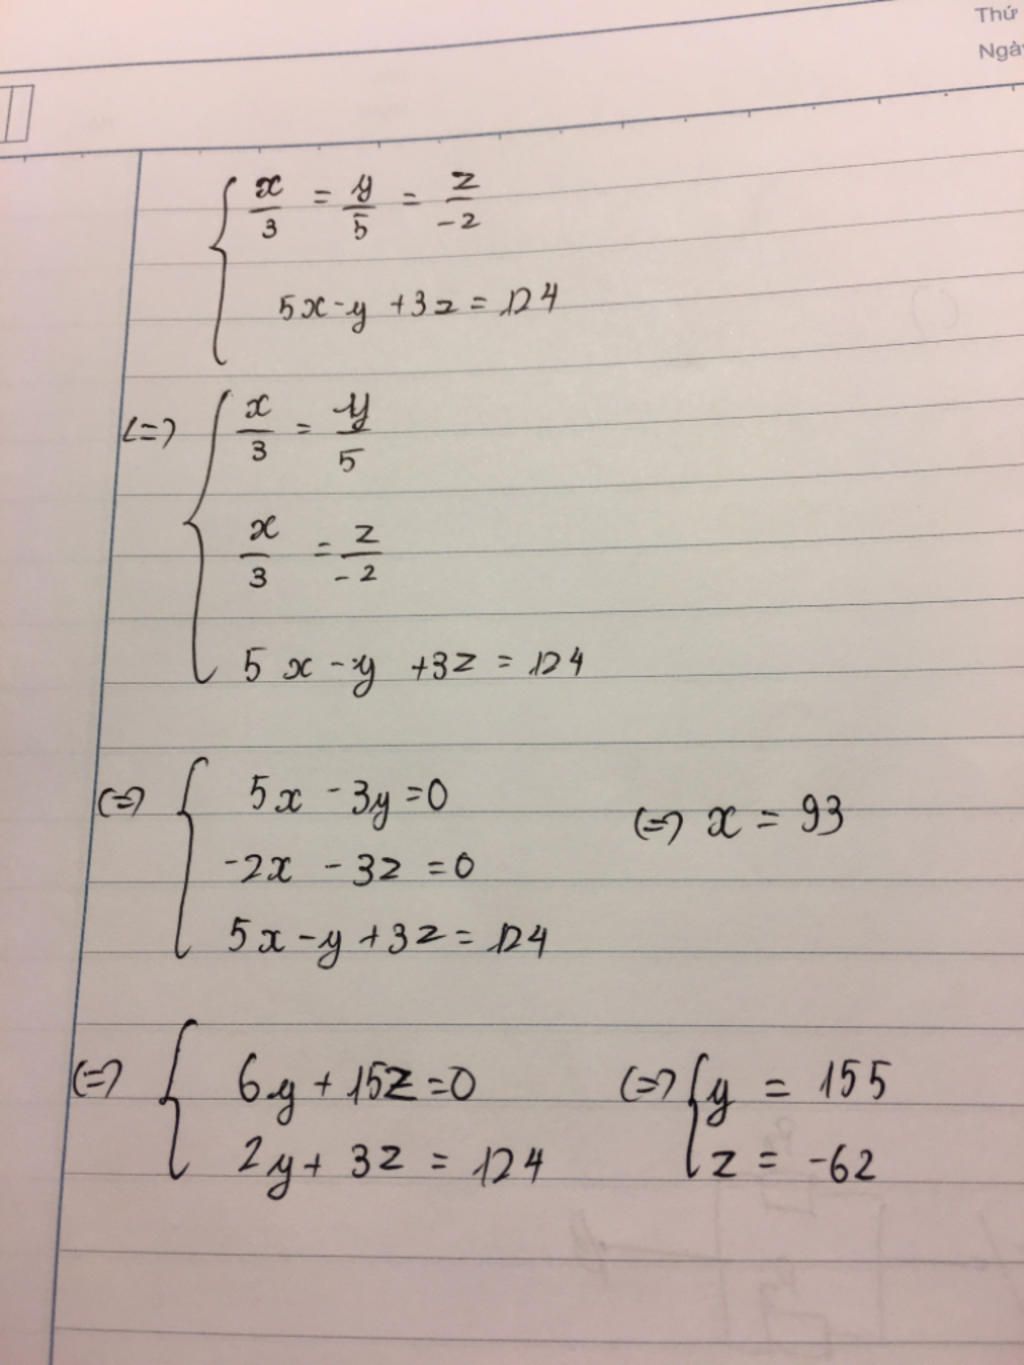 Thứ
Ngày
x/3 = y/5 = z/-2
5x - y + 3z = 124
(=) x/3 = y/5
x/3 = z/-2
5x - y + 3z = 124
(=) 5x - 3y = 0
-2x - 3z = 0
5x - y + 3z = 124
(=) x = 93
(=) 6y + 15z = 0
2y + 3z = 124
(=) y = 155
z = -62